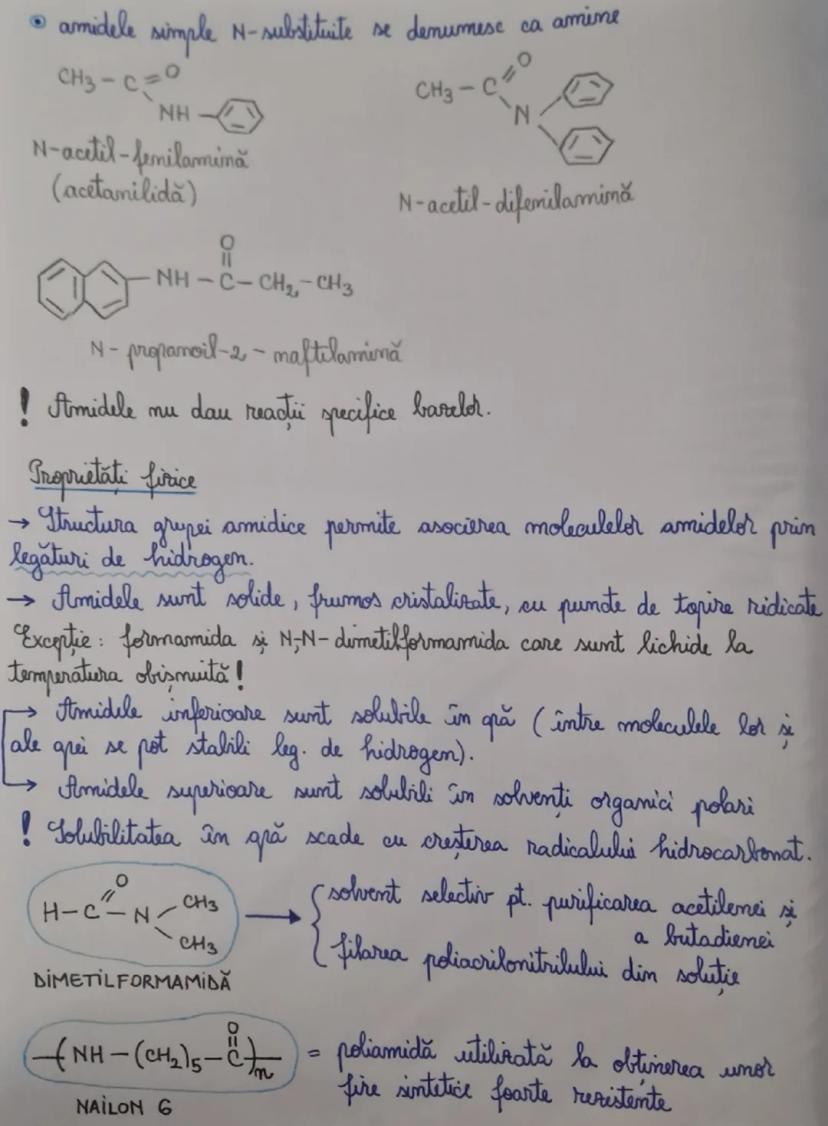 amidele simple N-substituite se denumesc ca amine
CH3 – C = O
NH –
N-acetil-fenilamină
(acetanilidă)
CH3 – C = O
N
N-acetil-difenilamină
O
– NH – C – CH2 – CH3
N-propanoil-2-naftilamină
! Amidele nu dau reacții specifice bazelor.
Proprietăți fizice
→ Structura grupei amidice permite asocierea moleculelor amidelor prin
legături de hidrogen.
→ Amidele sunt solide, frumos cristalizate, cu puncte de topire ridicate
Excepție: formamida și N,N-dimetilformamida care sunt lichide la
temperatura obișnuită!
→ Amidele inferioare sunt solubile în apă (între moleculele lor și
ale apei se pot stabili leg. de hidrogen).
→ Amidele superioare sunt solubili în solvenți organici polari
! Solubilitatea în apă scade cu creșterea radicalului hidrocarbonat.
O
H – C – N
CH3
CH3
DIMETILFORMAMIDĂ
→ { solvent selectiv pt. purificarea acetilenei și
a butadienei
filarea poliacrilonitrilului din soluție
O
–( NH – (CH2)5 – C )n–
NAILON 6
= poliamidă utilizată la obținerea unor
fire sintetice foarte rezistente